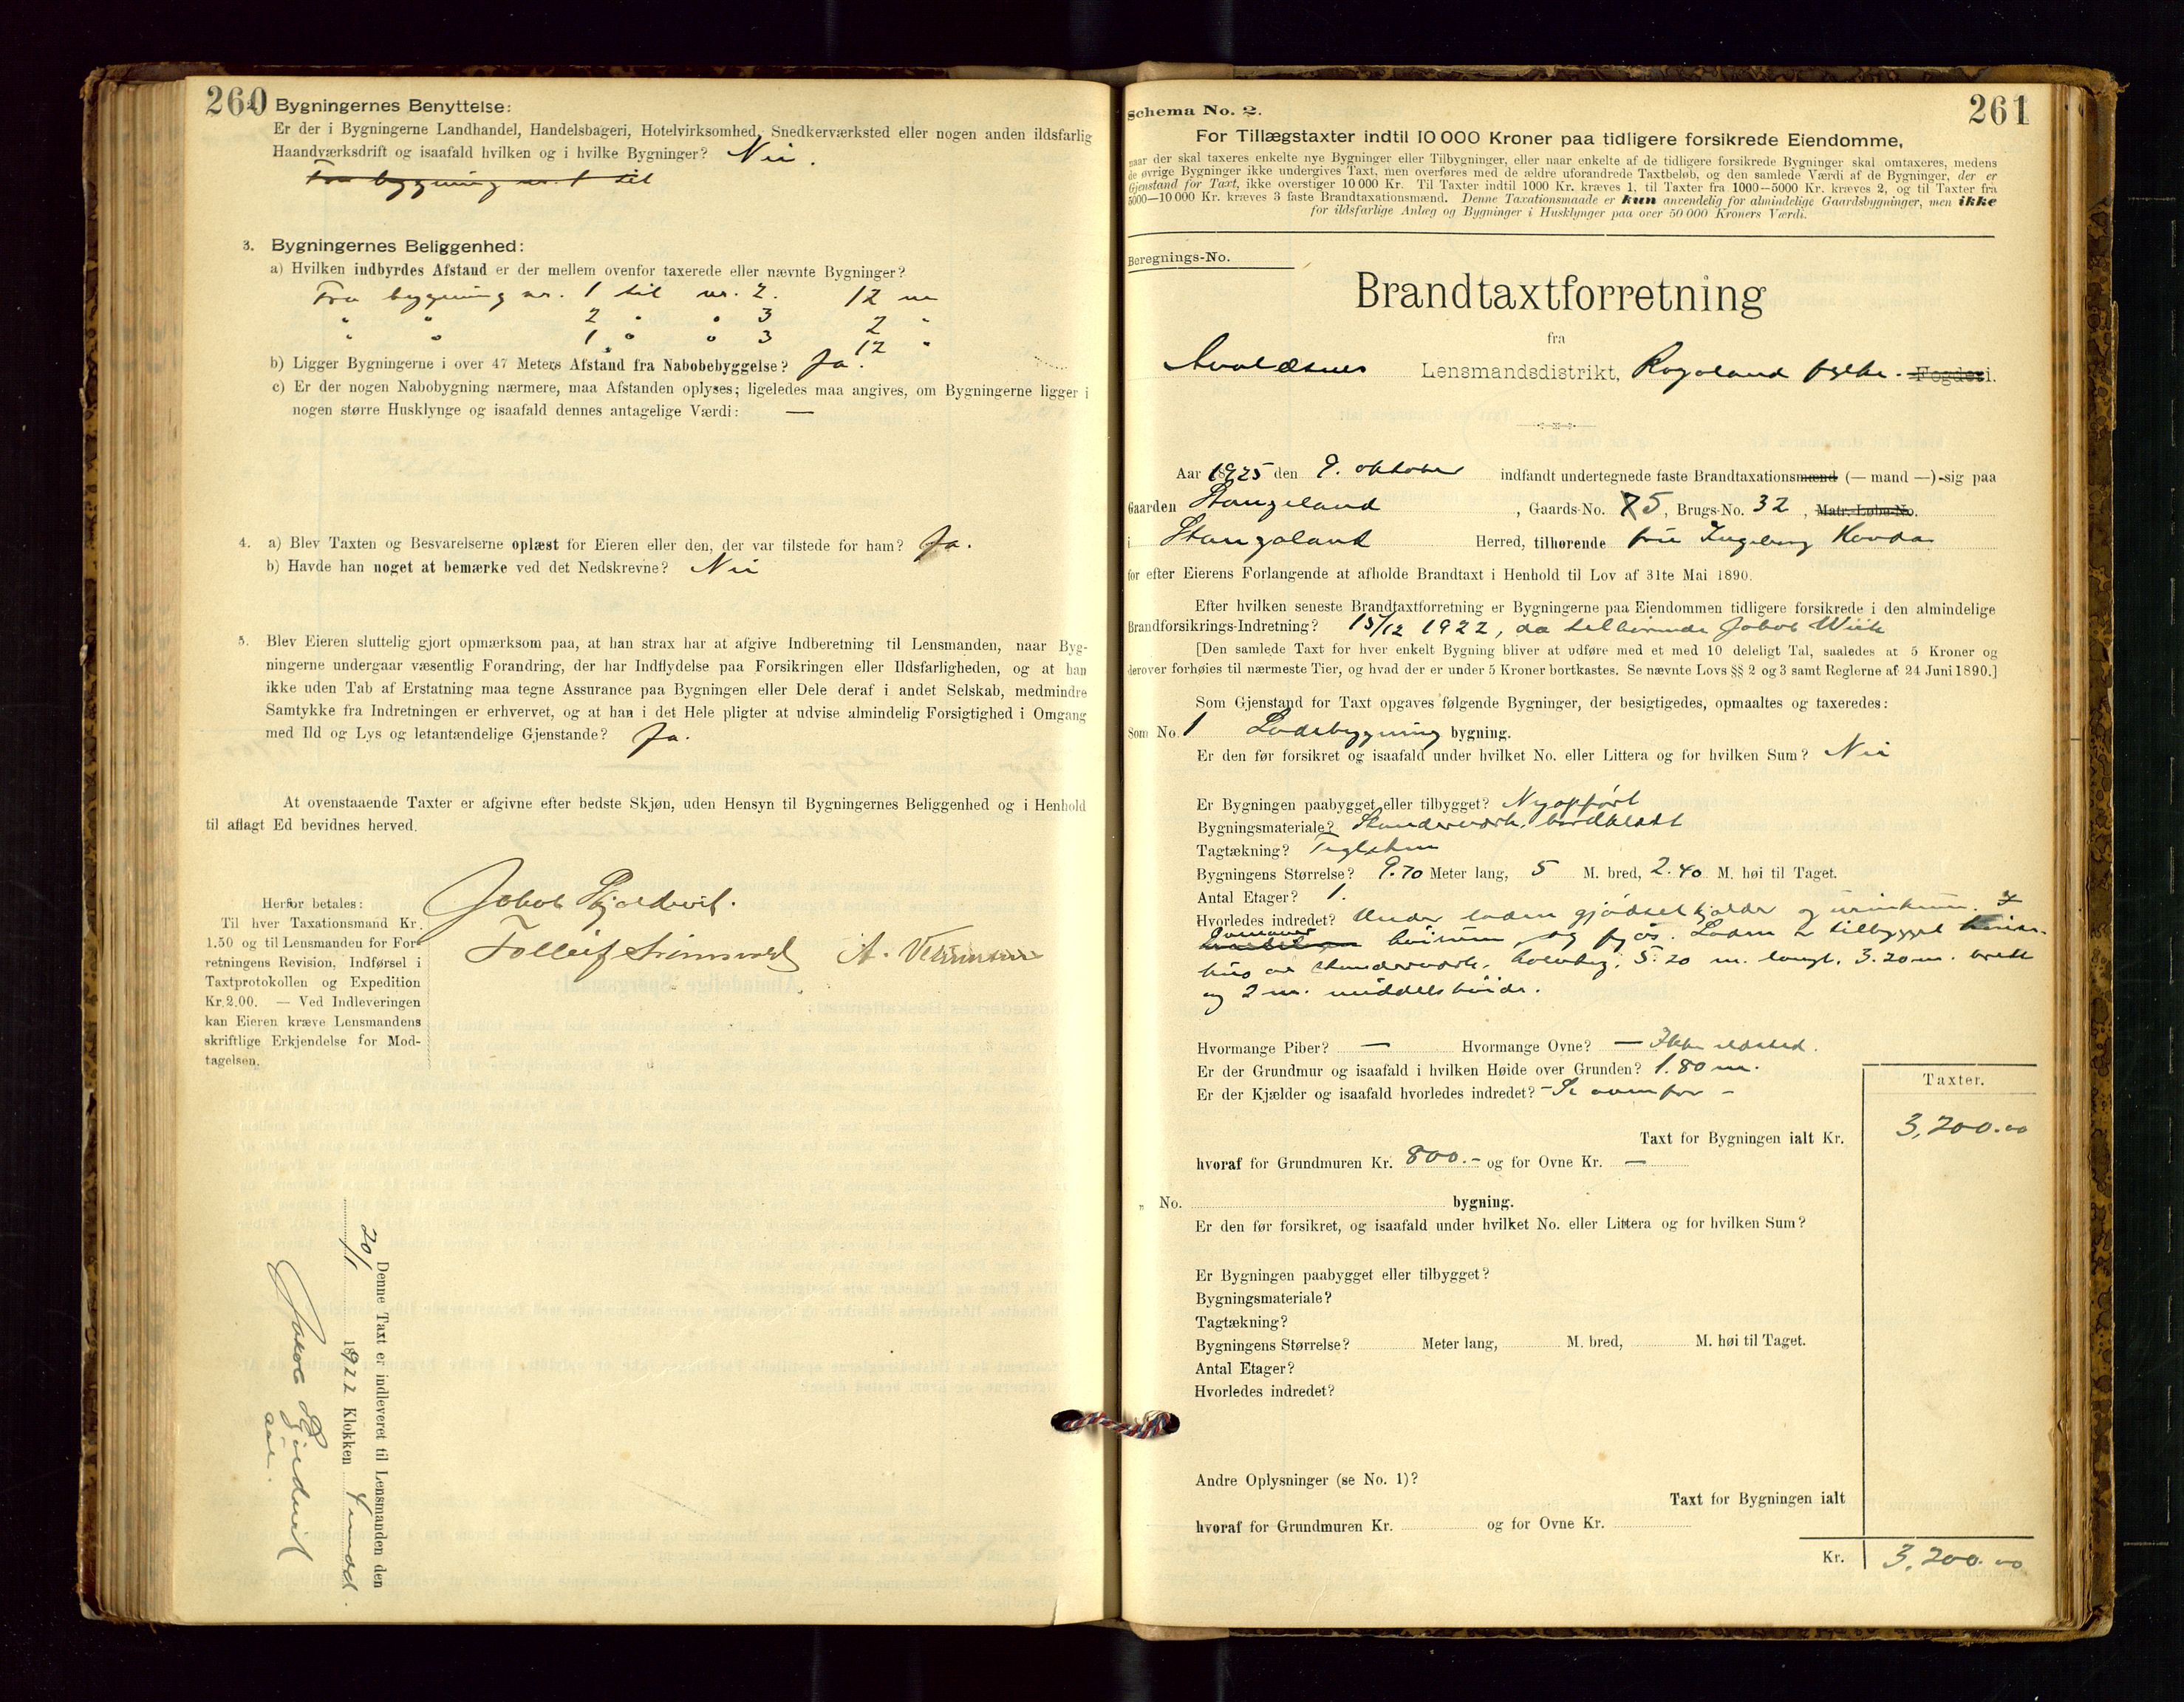 260 Bygningernes Benyttelse:
Er der i Bygningerne Landhandel, Handelsbageri, Hotelvirksomhed, Snedkerværksted eller nogen anden ildsfarlig
Haandværksdrift og isaafald hvilken og i hvilke Bygninger? Nei.
Fra bygning nr. 1 til
3. Bygningernes Beliggenhed:
a) Hvilken indbyrdes Afstand er der mellem ovenfor taxerede eller nævnte Bygninger?
Fra bygning nr. 1 til nr. 2. 12 m
" " 2 " " 3 2 "
" " 1 " " 3 12 "
b) Ligger Bygningerne i over 47 Meters Afstand fra Nabobebyggelse? Ja.
c) Er der nogen Nabobygning nærmere, maa Afstanden oplyses; ligeledes maa angives, om Bygningerne ligger i
nogen større Husklynge og isaafald dennes antagelige Værdi: —
4. a) Blev Taxten og Besvarelserne oplæst for Eieren eller den, der var tilstede for ham? Ja.
b) Havde han noget at bemærke ved det Nedskrevne? Nei
5. Blev Eieren sluttelig gjort opmærksom paa, at han strax har at afgive Indberetning til Lensmanden, naar Byg-
ningerne undergaar væsentlig Forandring, der har Indflydelse paa Forsikringen eller Ildsfarligheden, og at han
ikke uden Tab af Erstatning maa tegne Assurance paa Bygningen eller Dele deraf i andet Selskab, medmindre
Samtykke fra Indretningen er erhvervet, og at han i det Hele pligter at udvise almindelig Forsigtighed i Omgang
med Ild og Lys og letantændelige Gjenstande? Ja.
At ovenstaaende Taxter er afgivne efter bedste Skjøn, uden Hensyn til Bygningernes Beliggenhed og i Henhold
til aflagt Ed bevidnes herved.
Jakob Skjoldevik.
Tolleif
Herfor betales:
Til hver Taxationsmand Kr.
1.50 og til Lensmanden for For-
retningens Revision, Indførsel i
Taxtprotokollen og Expedition
Kr. 2.00. — Ved Indleveringen
kan Eieren kræve Lensmandens
skriftlige Erkjendelse for Mod-
tagelsen.
Denne Taxt er indleveret til Lensmanden den
20/1 1922 Klokken
Jakob Skjoldevik
Schema No. 2. 261
For Tillægstaxter indtil 10 000 Kroner paa tidligere forsikrede Eiendomme,
naar der skal taxeres enkelte nye Bygninger eller Tilbygninger, eller naar enkelte af de tidligere forsikrede Bygninger skal omtaxeres, medens
de øvrige Bygninger ikke undergives Taxt, men overføres med de ældre uforandrede Taxtbeløb, og den samlede Værdi af de Bygninger, der er
Gjenstand for Taxt, ikke overstiger 10 000 Kr. Til Taxter indtil 1000 Kr. kræves 1, til Taxter fra 1000—5000 Kr. kræves 2, og til Taxter fra
5000—10 000 Kr. kræves 3 faste Brandtaxationsmænd. Denne Taxationsmaade er kun anvendelig for almindelige Gaardsbygninger, men ikke
for ildsfarlige Anlæg og Bygninger i Husklynger paa over 50 000 Kroners Værdi.
Beregnings-No.
Brandtaxtforretning
fra
Avaldsnes Lensmandsdistrikt, Rogaland fylke. Fogderi.
Aar 1925 den 9. oktober indfandt undertegnede faste Brandtaxationsmænd (— mand —) sig paa
Gaarden Stangeland, Gaards-No. 75, Brugs-No. 32, Matr. Løbe-No.
i Stangaland Herred, tilhørende fru Ingeborg Havda
for efter Eierens Forlangende at afholde Brandtaxt i Henhold til Lov af 31te Mai 1890.
Efter hvilken seneste Brandtaxtforretning er Bygningerne paa Eiendommen tidligere forsikrede i den almindelige
Brandforsikrings-Indretning? 15/12 1922, da tilhørende Jakob Wiik
[Den samlede Taxt for hver enkelt Bygning bliver at udføre med et med 10 deleligt Tal, saaledes at 5 Kroner og
derover forhøies til nærmeste Tier, og hvad der er under 5 Kroner bortkastes. Se nævnte Lovs §§ 2 og 3 samt Reglerne af 24 Juni 1890.]
Som Gjenstand for Taxt opgaves følgende Bygninger, der besigtigedes, opmaaltes og taxeredes:
Som No. 1 Ladebygning bygning.
Er den før forsikret og isaafald under hvilket No. eller Littera og for hvilken Sum? Nei
Er Bygningen paabygget eller tilbygget? Nyopført
Bygningsmateriale? Standerværk, bordklædt
Tagtækning? Teglsten
Bygningens Størrelse? 9.70 Meter lang, 5 M. bred, 2.40 M. høi til Taget.
Antal Etager? 1.
Hvorledes indredet? Under laden gjødselkjælder og urinkum. I
høirum og fjøs. Laden er tilbygget
hus av standerværk, 5.20 m. langt, 3.20 m. bredt
og 2 m. middelshøide.
Hvormange Piber? — Hvormange Ovne? — Ikke ildsted.
Er der Grundmur og isaafald i hvilken Høide over Grunden? 1.80 m.
Er der Kjælder og isaafald hvorledes indredet? - Se ovenfor -
Taxter.
Taxt for Bygningen ialt Kr. 3,200.00
hvoraf for Grundmuren Kr. 800.- og for Ovne Kr. —
" No. bygning.
Er den før forsikret, og isaafald under hvilket No. eller Littera og for hvilken Sum?
Er Bygningen paabygget eller tilbygget?
Bygningsmateriale?
Tagtækning?
Bygningens Størrelse? Meter lang, M. bred, M. høi til Taget.
Antal Etager?
Hvorledes indredet?
Andre Oplysninger (se No. 1)?
Taxt for Bygningen ialt
hvoraf for Grundmuren Kr. og for Ovne Kr.
Kr. 3,200.00